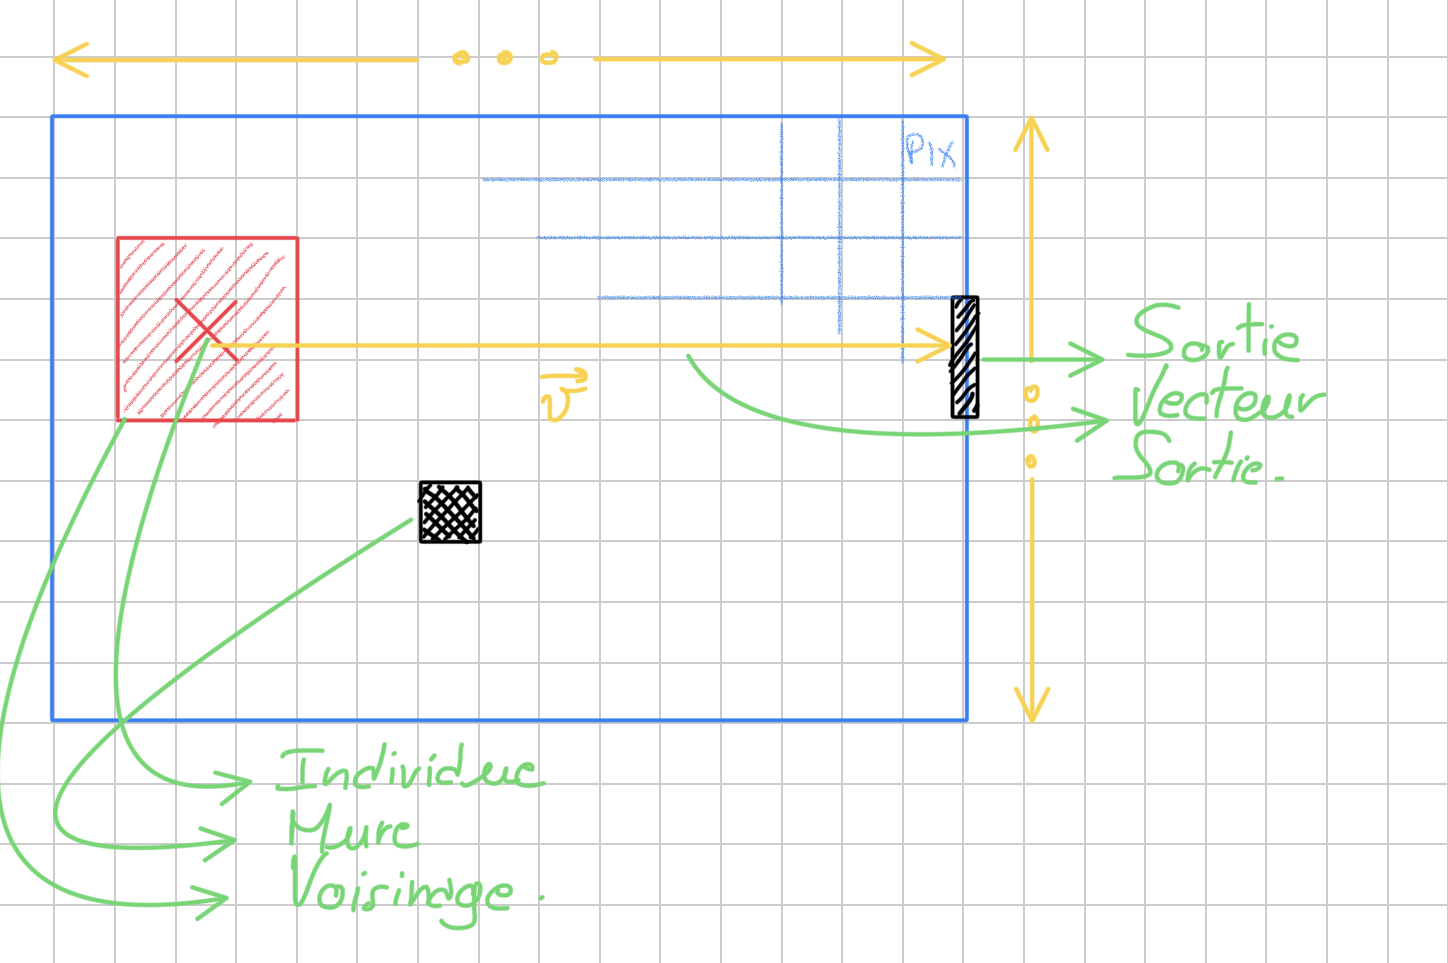 PIX
Sortie
v
Vecteur
Sortie.
Individue
Mure
Voisinage.